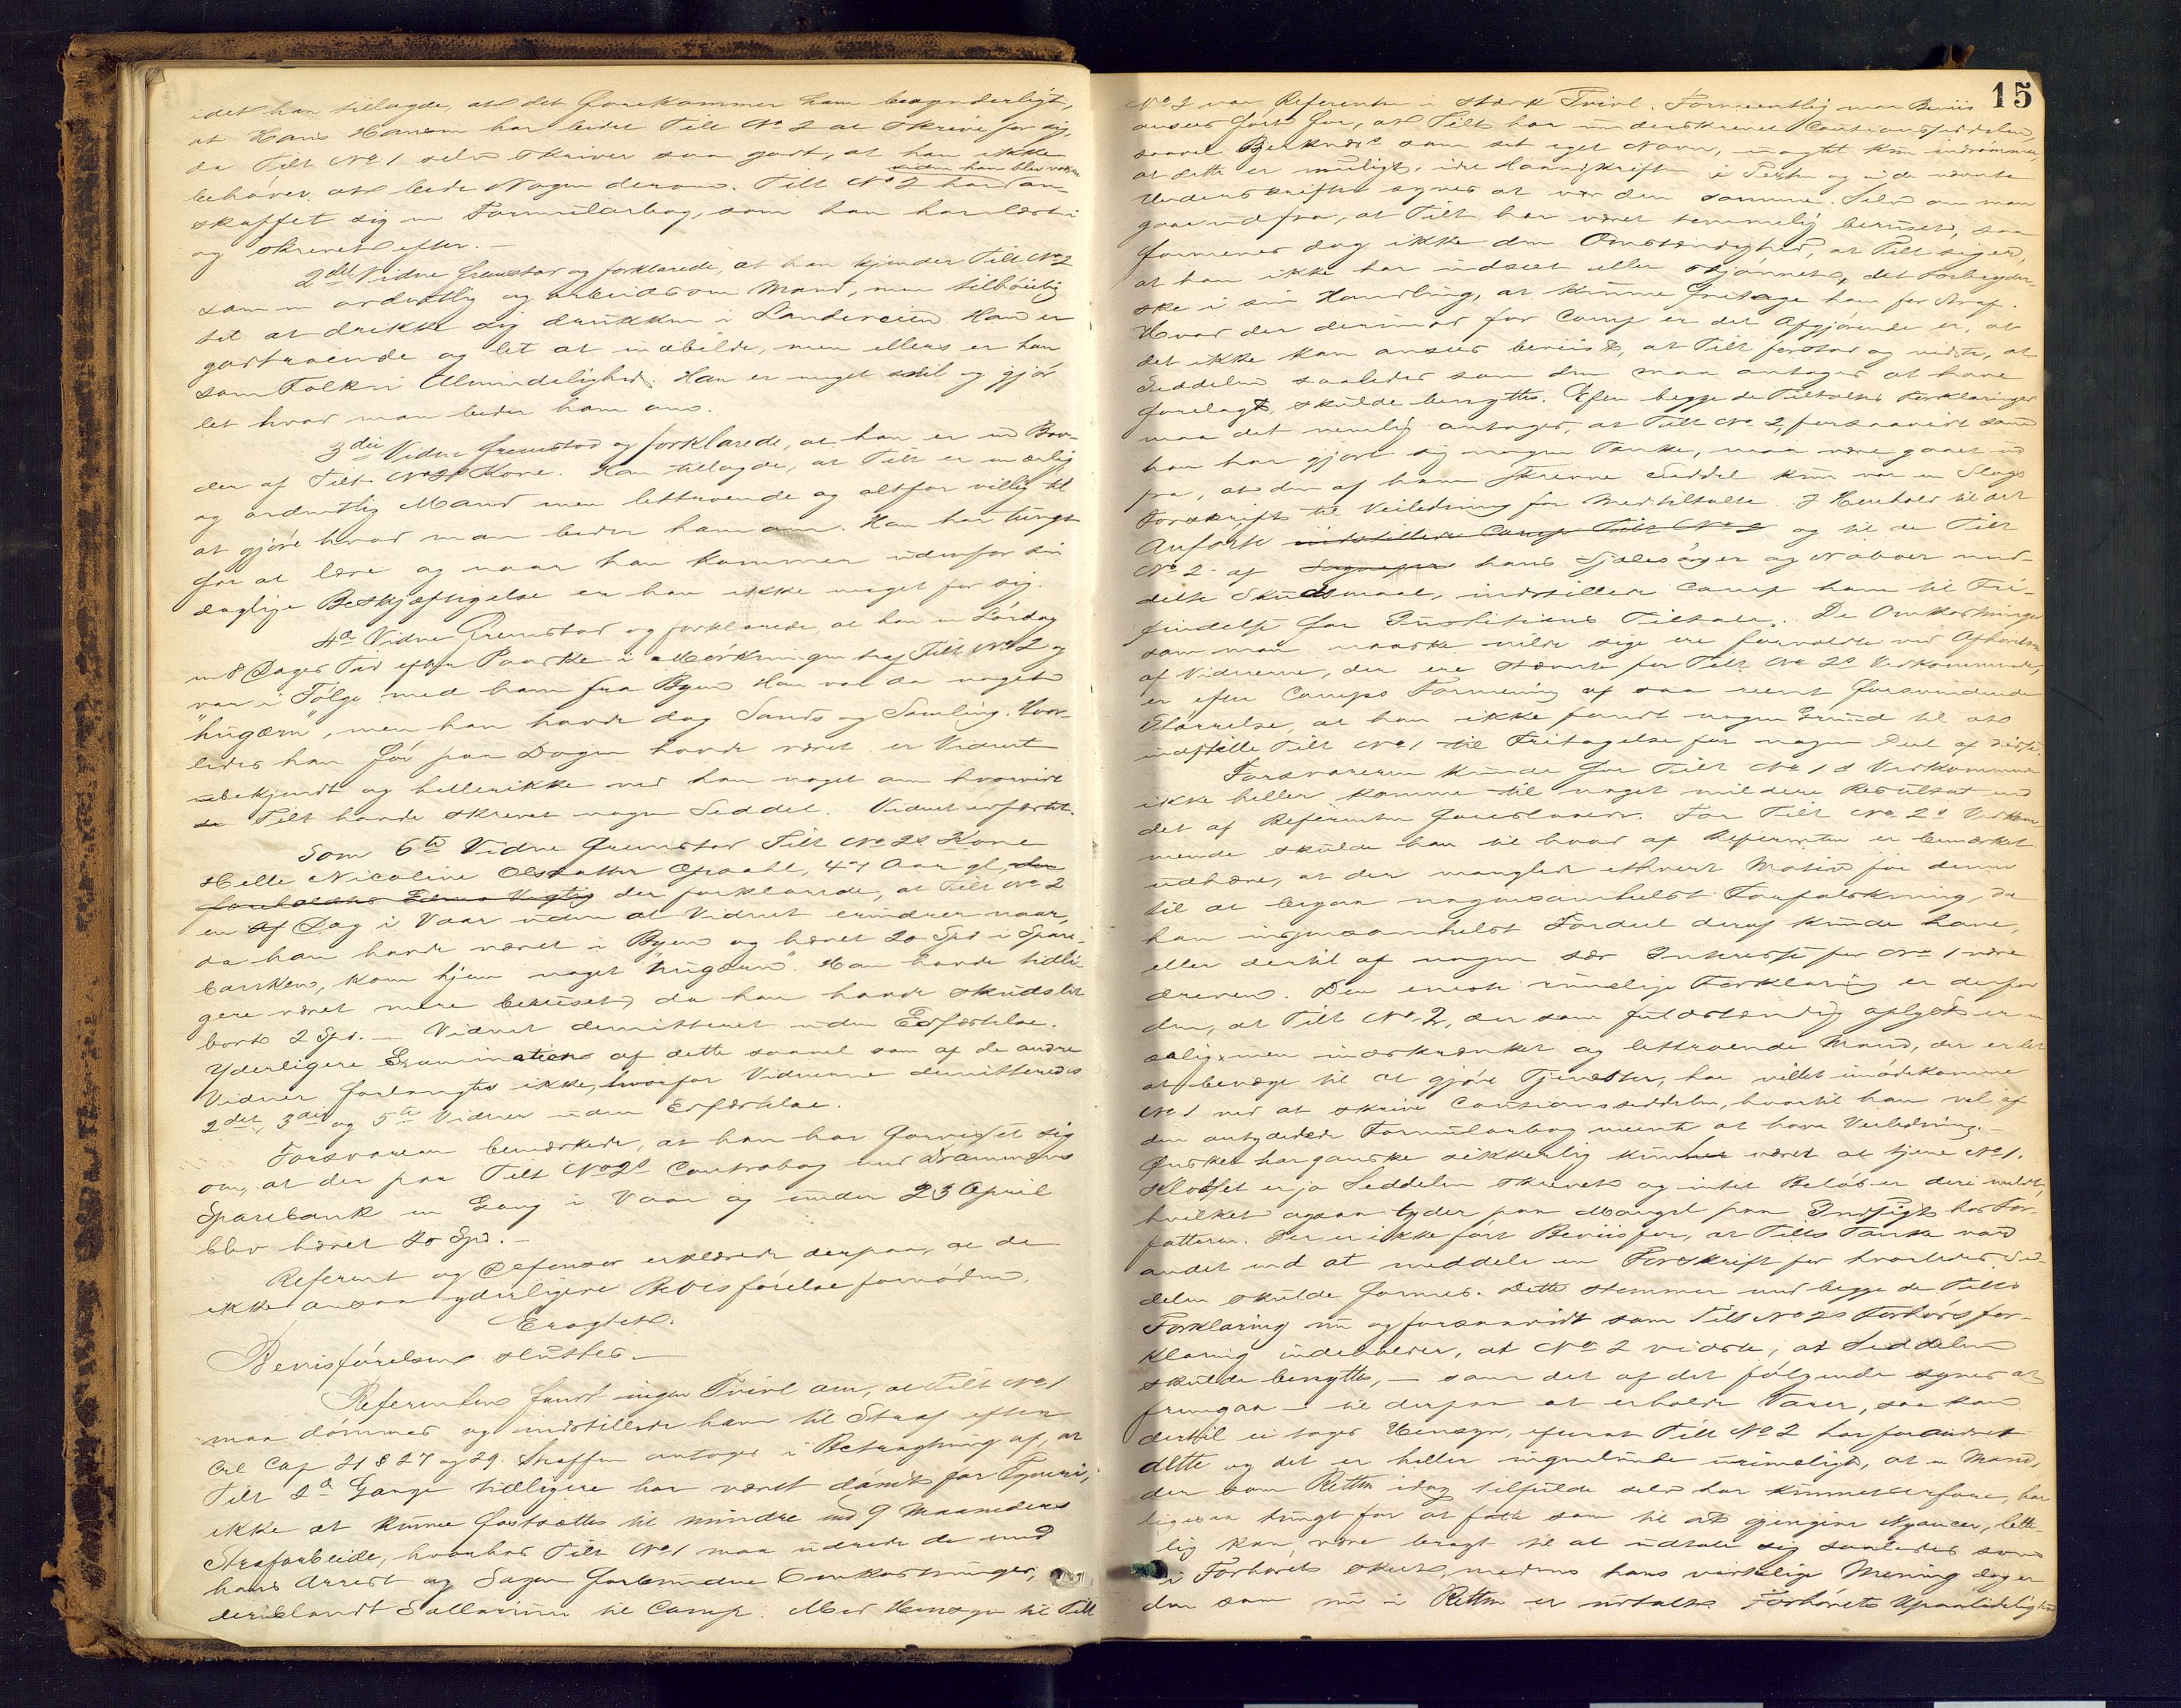 idet han tillagde, at det forekommer ham besynderligt,
at Hans Hansen har bedet Tilt No 2 at skrive for sig,
da Tilt No 1 selv skriver saa godt, at han ikke
behøver at bede Nogen derom. Tilt No 2 har an-
skaffet sig en Formularbog, som han har læst i
og skrevet efter. —
2det Vidne fremstod og forklarede, at han kjender Tilt No 2
som en ordentlig og arbeidsom Mand, men tilbøielig
til at drikke sig drukken i Landeveien. Han er
godtroende og let at indbilde, men ellers er han
som Folk i Almindelighed. Han er meget snil og gjør
let hvad man beder ham om.
3die Vidne fremstod og forklarede, at han er en Bro-
der af Tilt No 2s Kone. Han tillagde, at Tilt er en ærlig
og ordentlig Mand men lettroende og altfor villig til
at gjøre hvad man beder ham om. Han har tungt
for at lære og naar han kommer udenfor sin
daglige Beskjæftigelse er han ikke meget for sig.
4de Vidne fremstod og forklarede, at han en Lørdag
en 8 Dages Tid efter Paaske i Mørkningen traf Tilt No 2 og
var i Følge med ham fra Byen. Han var da noget
"hugøren", men han havde dog Sands og Samling. Hvor-
ledes han før paa Dagen havde været er Vidnet
ubekjendt og hellerikke ved han noget om hvorvidt
Tilt havde skrevet nogen Seddel. Vidnet
Som 6te Vidne fremstod Tilt No 2s Kone
Helle Nicoline Olsdatter 47 Aar gl,
der forklarede, at Tilt No 2
en Dag i Vaar uden at Vidnet erindrer naar,
da han havde været i Byen og hævet 20 Spd i Spare-
banken, kom hjem noget "hugøren". Han havde tidli-
gere været mere beruset, da han havde skudslet
bort 2 Spd. — Vidnet demitteret uden Edfæstelse.
Yderligere Examination af dette saavel som af de andre
Vidner forlangtes ikke, hvorfor Vidnerne demitteredes
2det, 3die og 5te Vidner uden Edfæstelse.
Forsvareren bemærkede, at han har forvisset sig
om, at der paa Tilt No 2s Contrabog med Drammens
Sparebank en Gang i Vaar og under 23 April
blev hævet 20 Spd. —
Referent og Defensor erklærede derpaa, at de
ikke ansaa yderligere Bevisførelse fornøden.
Eragtet.
Bevisførelsen sluttes. —
Referenten fandt ingen Tvivl om, at Tilt No 1
maa dømmes og indstillede ham til Straf efter
Crl Cap 21 § 27 og 29. Straffen antages i Betragtning af, at
Tilt 2de Gange tidligere har været dømt for Tyveri,
ikke at kunne fastsættes til mindre end 9 Maaneders
Strafarbeide, hvorhos Tilt No 1 maa udrede de med
hans Arrest og Sagen forbundne Omkostninger,
deriblandt Sallarium til Comp. Med Hensyn til Tilt
15
No 2 var Referenten i stærk Tvivl. Formeentlig maa Beviis
ansees ført for, at Tilt har underskrevet Cautionsseddelen,
saavel som sit eget Navn, uagtet kun indrømmer,
at dette er muligt, idet Haandskriften i Texten og i de nævnte
Underskrifter synes at være den samme. Selv om man
gaar ud fra, at Tilt har været temmelig beruset, saa
formener dog ikke den Omstændighed, at Tilt siger,
at han ikke har indseet eller skjønnet, det Forbryder-
ske i sin Handling, at kunne fritage ham for Straf.
Hvad der derimod for Comp er det Afgjørende er, at
det ikke kan ansees beviist, at Tilt forstod og vidste, at
Seddelen saaledes som den maa antages at have
forelagt, skulde benyttes. Efter begge de Tiltaltes Forklaringer
maa det nemlig antages, at Tilt No 2, forsaavidt som
han har gjort sig nogen Tanke, maa være gaaet ud
fra, at den af ham skrevne Seddel kun var en Slags
Forskrift til Veiledning for Medtiltalte. I Henhold til det
Anførte indstillede Comp Tilt No 2 og til de Tilt
No 2 af hans Sjælesørger og Naboer med-
delte Skudsmaal, indstillede Comp ham til Fri-
findelse for Justitiens Tiltale. De Omkostninger
som man maaske vilde sige ere forvoldte ved Afhørelsen
af Vidnerne, der ere stevnte for Tilt No 2s Vedkommende,
er efter Comps Formening af saa reent forsvindende
Størrelse, at han ikke fandt nogen Grund til at
indstille Tilt No 1 til Fritagelse for nogen Deel af disse.
Forsvareren kunde for Tilt No 1s Vedkommende
ikke heller komme til noget mildere Resultat end
det af Referenten foreslaaede. For Tilt No 2s Vedkom-
mende skulde han til hvad af Referenten er bemærket
udhæve, at der mangler ethvert Motiv for denne
til at begaa nogensomhelst Forfalskning, da
han ingensomhelst Fordeel deraf kunde have,
eller dertil af nogen sær Interesse for No 1 være
dreven. Den eneste rimelige Forklaring er derfor
den, at Tilt No 2, der som fuldstændig oplyst er en
ærlig, men indskrænket og lettroende Mand, der er let
at bevæge til at gjøre Tjenester, har villet imødekomme
No 1 ved at skrive Cautionsseddelen, hvortil han vel af
den antydede Formularbog meente at have Veiledning. —
Ønsket har ganske sikkerlig kun været at tjene No 1.
Klodset er jo Seddelen skrevet og intet Beløb er deri meldt,
hvilket ogsaa tyder paa Mangel paa Indsigt hos For-
fatteren. Der er ikke ført Beviis for, at Tilts Tanke var
andet end at meddele en Forskrift for hvorledes Sed-
delen skulde formes. Dette stemmer med begge de Tilts
Forklaring nu og forsaavidt som Tilt No 2s Forhørsfor-
klaring indeholder, at No 2 vidste, at Seddelen
skulde benyttes, — som det af det følgende synes at
fremgaa — til derpaa at erholde Varer, saa kan
dertil ei tages Hensyn, efterat Tilt No 2 har forandret
dette og det er heller ingenlunde urimeligt, at en Mand,
der som Retten idag tilfulde selv har kunnet erfare, har
ligesaa tungt for at fatte som til at gjengive Nyancer, lette-
lig kan være bragt til at udtale sig saaledes som
i Forhøret skeet, medens hans virkelige Mening dog er
den som nu i Retten er udtalt. Forhørets Upaalidelighed